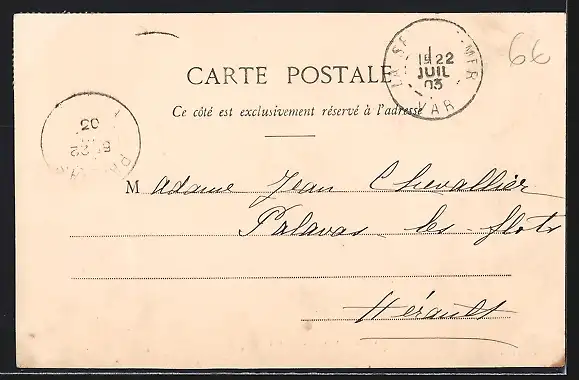 66
LA SE MER
1E 22
JUIL
03
VAR
CARTE POSTALE
Ce côté est exclusivement réservé à l'adresse
03
22
Madame Jean Chevallier
Palavas les flots
Hérault